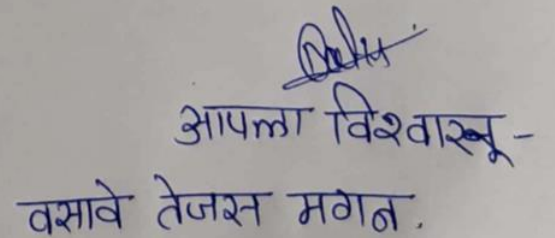 आपला विश्वासू -
वसावे तेजस मगन.